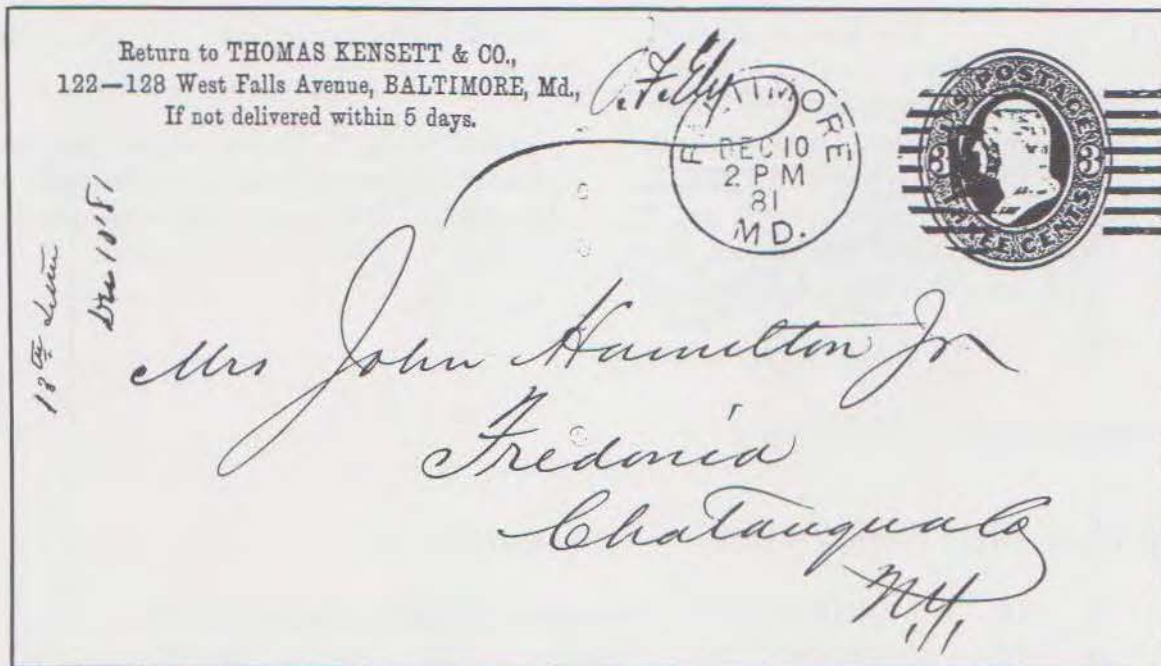 Return to THOMAS KENSETT & CO.,
122—128 West Falls Avenue, BALTIMORE, Md.,
If not delivered within 5 days.
BALTIMORE
DEC 10
2 PM
81
MD.
U.S. POSTAGE
3 3
THREE CENTS
13th Letter
Dec 10 '81
Mrs John Hamilton Jr
Fredonia
Chatauqua Co
N.Y.